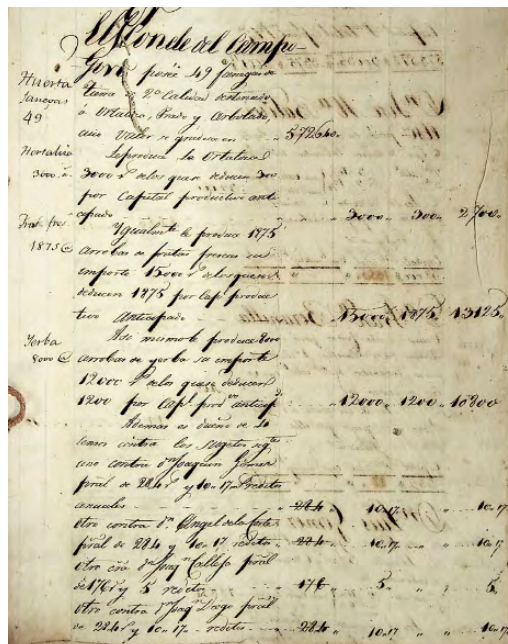 El Conde del Campo
Giro posée 49 fanegas de
Huerta
tierra de 2ª Calidad destinado
fanegas
49
á Ortaliza, prado y Arbolado,
cuio valor se gradua en 57264..
Hortaliza
Le produce la Ortaliza
3000..
3000 rˢ delos quese deducen 300
por Capital productivo anti
cipado 3000.. 300.. 2700..
Yqualmte le produce 1875
1875 @
arrobas de frutas frescas su
importe 15000 rˢ delos que se
deducen 1875 por Cap¹ produc
tivo anticipado 15000.. 1875.. 13125..
Yerba
Asi mismo le produce 8000
8000 @
arrobas de yerba su importe
12000 rˢ delos quese deducen
1200 por Cap¹ prodvo anticipº 12000.. 1200.. 10800
Ademas es dueño de
censos contra los sugetos sigtes
uno contra dn Joaquin Gomez
pral de 284 rˢ y 10..17.. reditos
anuales 284 10..17 10..17
Otro contra dn Angel dela
pral de 284 y 10..17 reditos 284.. 10..17.. 10..17
otro cra dn Joaqn Callejo pral
de 176 rˢ y 5 reditos 176 5.. 5..
Otro contra Joaqn Drogo pral
de 284 rˢ y 10..17.. reditos 284.. 10..17 10..17